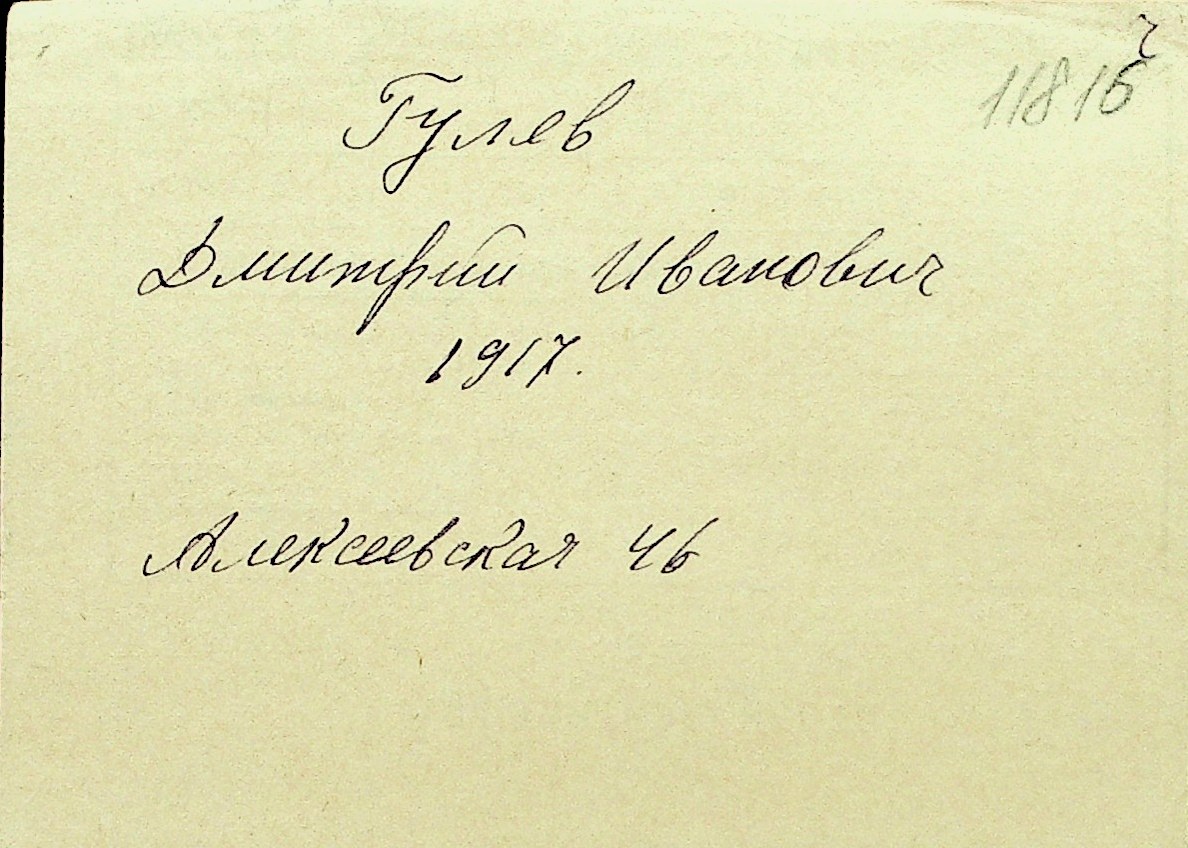 11816
Гулев
Дмитрий Иванович
1917.
Алексеевская 46